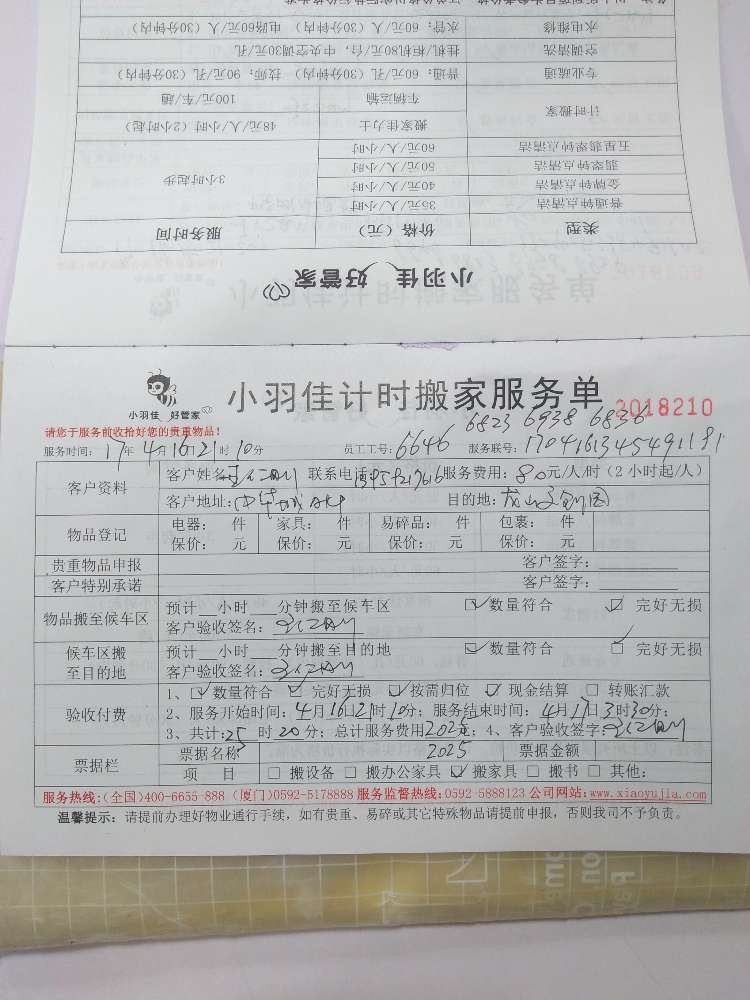 备注：以上所列项目为参考价格，
水电维修 水管：60元/人（30分钟内） 电路60元/人（30分钟内）
空调清洗 挂机/柜机80元/台，中央空调30元/孔
专业疏通 普通：60元/孔（30分钟内） 技师：90元/孔（30分钟内）
计时搬家 车辆运输 100元/车/趟
搬家佳力士 48元/人/小时（2小时起）
五星翡翠钟点清洁 60元/人/小时
翡翠钟点清洁 50元/人/小时
金牌钟点清洁 40元/人/小时
普通钟点清洁 35元/人/小时 3小时起步
类型 价格（元） 服务时间
小羽佳 好管家
小羽佳 好管家
小羽佳计时搬家服务单
2018210
请您于服务前收拾好您的贵重物品！
6823 6938 6836
服务时间：17年4月16日21时10分 员工工号：6646 服务联号：1704161345491181
客户资料 客户姓名： 联系电话： 服务费用：80元/人/时（2小时起/人）
客户地址：中华城 目的地：
物品登记 电器： 件 家具： 件 易碎品： 件 包裹： 件
保价： 元 保价： 元 保价： 元 保价： 元
贵重物品申报 客户签字：
客户特别承诺 客户签字：
物品搬至候车区 预计 小时 分钟搬至候车区 数量符合 完好无损
客户验收签名：
候车区搬至目的地 预计 小时 分钟搬至目的地 数量符合 完好无损
客户验收签名：
验收付费 1、数量符合 完好无损 按需归位 现金结算 转账汇款
2、服务开始时间：4月16日21时10分；服务结束时间：4月17日3时30分；
3、共计：25时20分；总计服务费用2025元；4、客户验收签字：
票据栏 票据名称 2025 票据金额
项 目 搬设备 搬办公家具 搬家具 搬书 其他：
服务热线：(全国)400-6655-888 (厦门)0592-5178888 服务监督热线：0592-5888123 公司网站：www.xiaoyujia.com
温馨提示：请提前办理好物业通行手续，如有贵重、易碎或其它特殊物品请提前申报，否则我司不予负责。